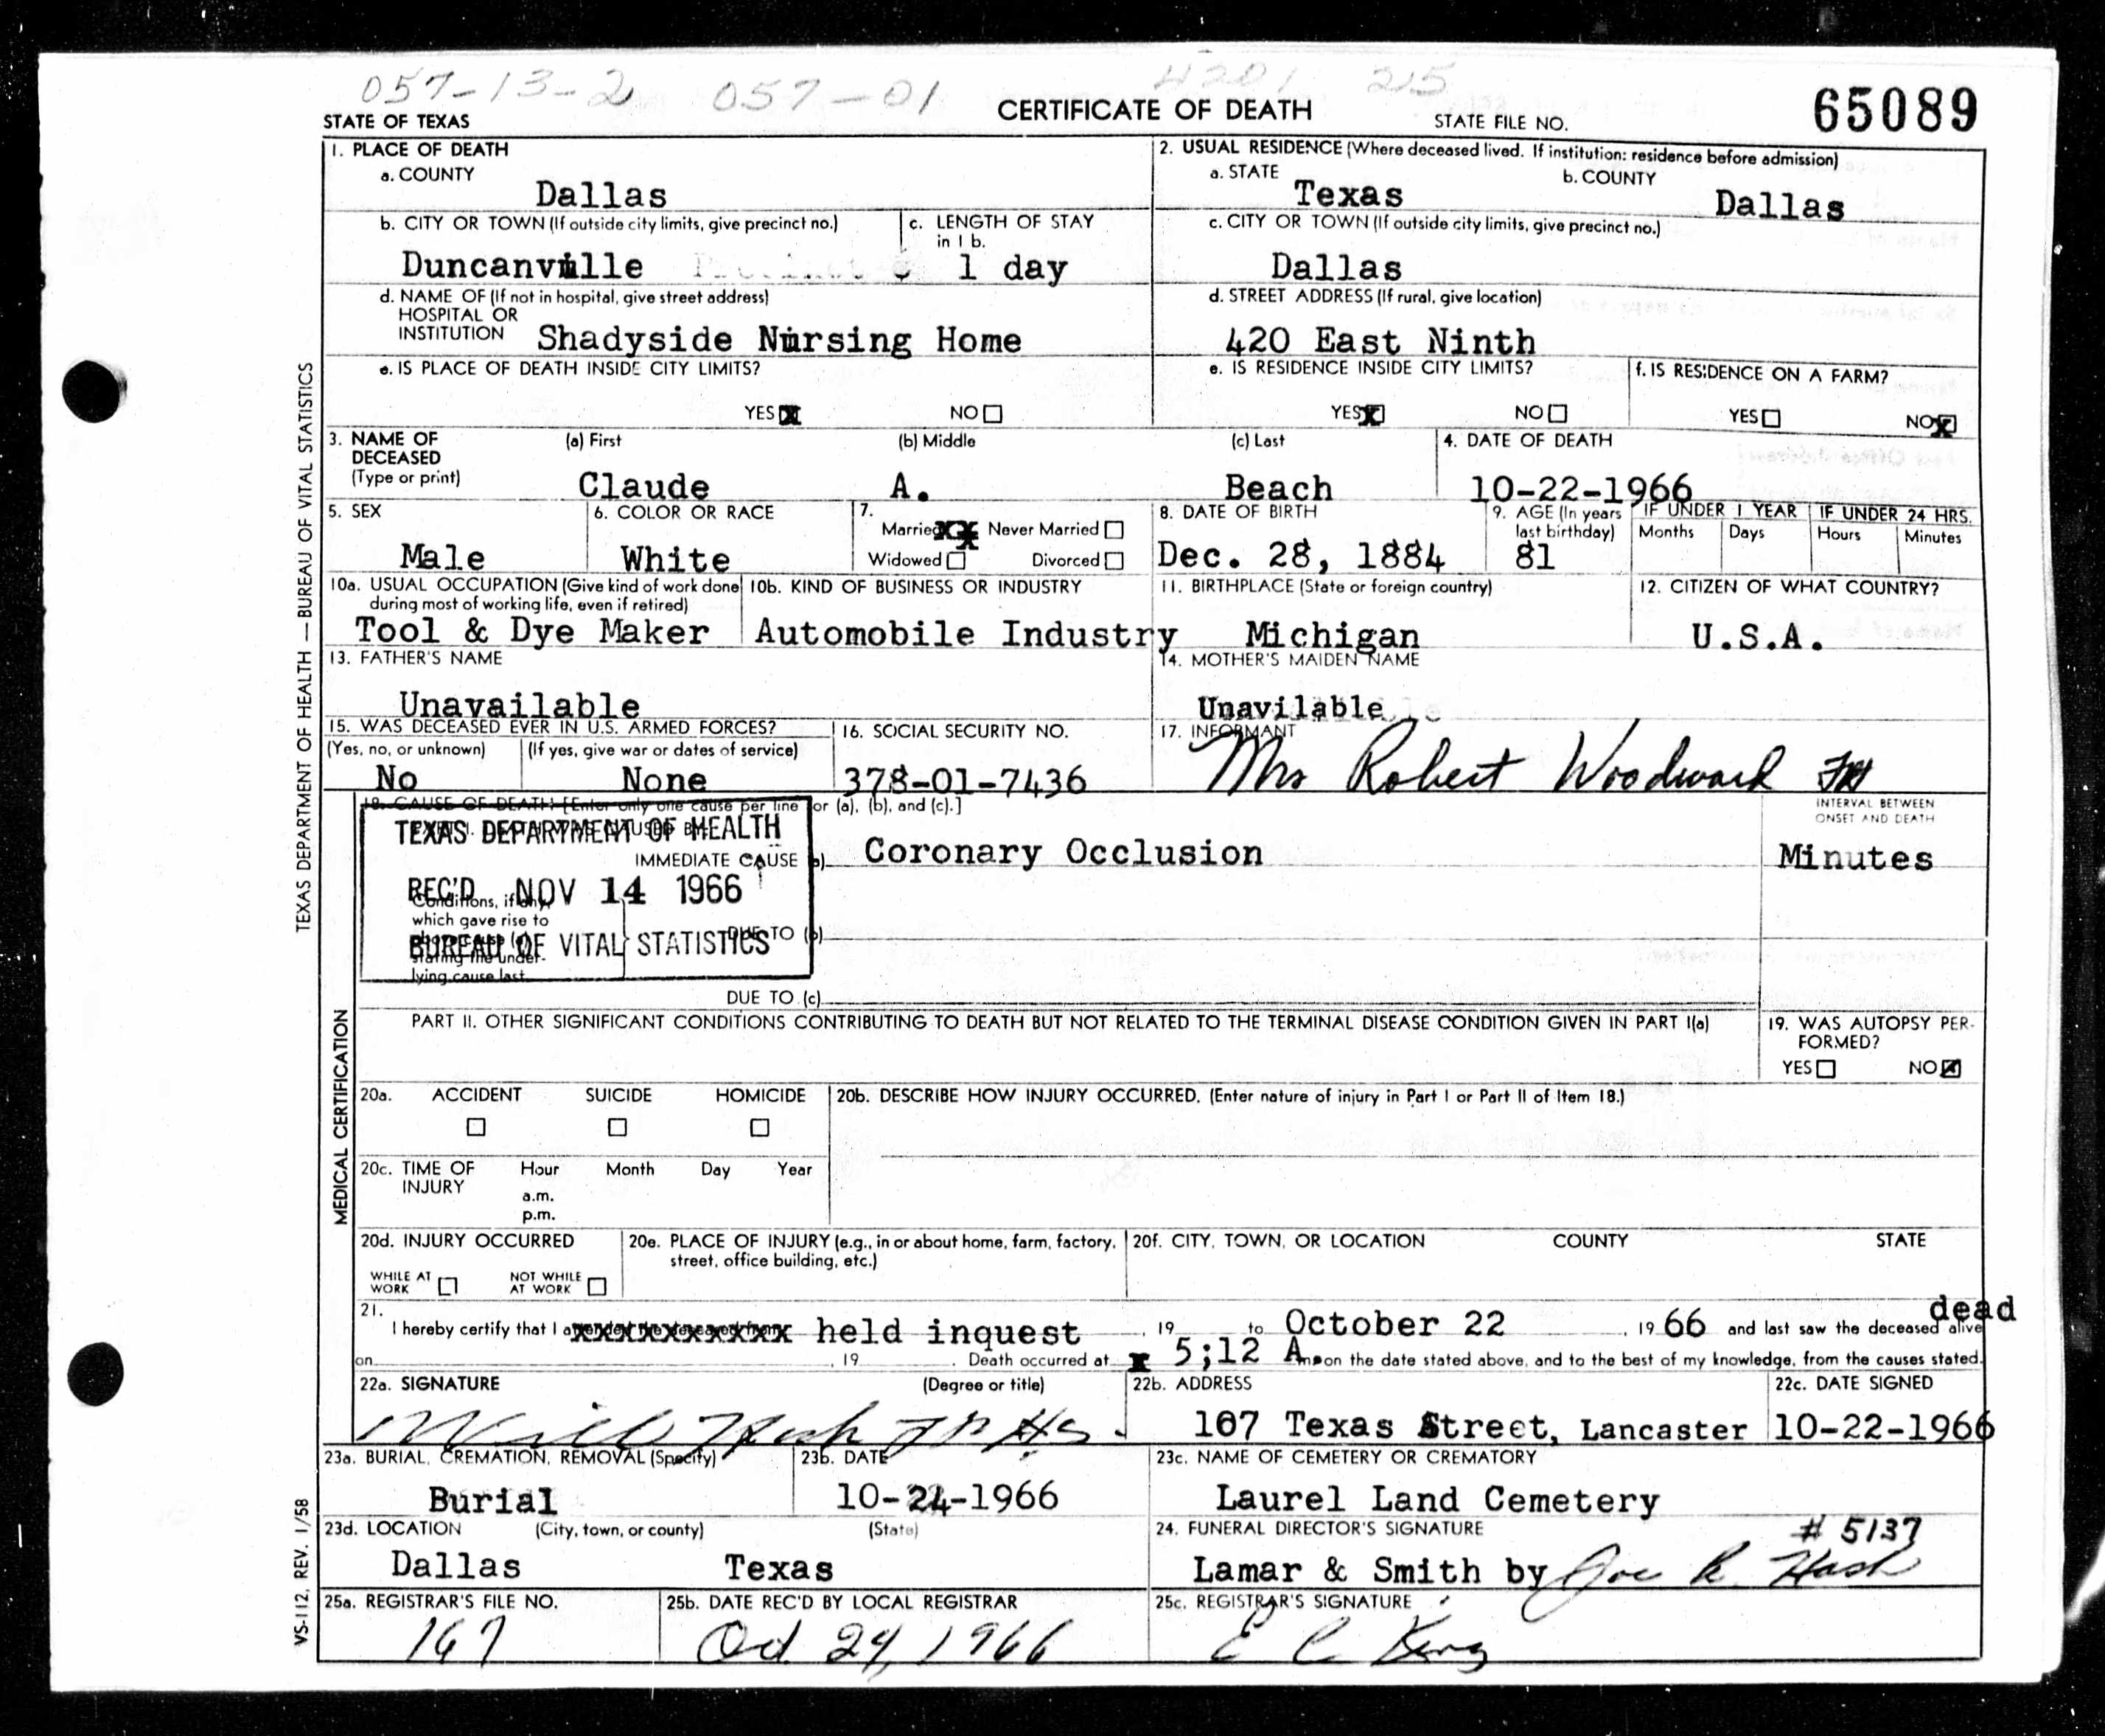 057-13-2 057-01 4201 215
STATE OF TEXAS
CERTIFICATE OF DEATH
STATE FILE NO.
65089
1. PLACE OF DEATH
a. COUNTY
Dallas
2. USUAL RESIDENCE (Where deceased lived. If institution: residence before admission)
a. STATE
Texas
b. COUNTY
Dallas
b. CITY OR TOWN (If outside city limits, give precinct no.)
Duncanville
c. LENGTH OF STAY
in 1 b.
1 day
c. CITY OR TOWN (If outside city limits, give precinct no.)
Dallas
d. NAME OF (If not in hospital, give street address)
HOSPITAL OR
INSTITUTION
Shadyside Nursing Home
d. STREET ADDRESS (If rural, give location)
420 East Ninth
e. IS PLACE OF DEATH INSIDE CITY LIMITS?
YES NO
e. IS RESIDENCE INSIDE CITY LIMITS?
YES NO
f. IS RESIDENCE ON A FARM?
YES NO
3. NAME OF
DECEASED
(Type or print)
(a) First
Claude
(b) Middle
A.
(c) Last
Beach
4. DATE OF DEATH
10-22-1966
5. SEX
Male
6. COLOR OR RACE
White
7.
Married Never Married
Widowed Divorced
8. DATE OF BIRTH
Dec. 28, 1884
9. AGE (In years
last birthday)
81
IF UNDER 1 YEAR
Months Days
IF UNDER 24 HRS.
Hours Minutes
10a. USUAL OCCUPATION (Give kind of work done
during most of working life, even if retired)
Tool & Dye Maker
10b. KIND OF BUSINESS OR INDUSTRY
Automobile Industry
11. BIRTHPLACE (State or foreign country)
Michigan
12. CITIZEN OF WHAT COUNTRY?
U.S.A.
13. FATHER'S NAME
Unavailable
14. MOTHER'S MAIDEN NAME
Unavilable
15. WAS DECEASED EVER IN U.S. ARMED FORCES?
(Yes, no, or unknown)
No
(If yes, give war or dates of service)
None
16. SOCIAL SECURITY NO.
378-01-7436
17. INFORMANT
Mrs Robert Woodward
18. CAUSE OF DEATH [Enter only one cause per line for (a), (b), and (c).]
INTERVAL BETWEEN
ONSET AND DEATH
TEXAS DEPARTMENT OF HEALTH
REC'D NOV 14 1966
BUREAU OF VITAL STATISTICS
IMMEDIATE CAUSE (a)
Coronary Occlusion
Minutes
Conditions, if any,
which gave rise to
above cause (a)
stating the under-
lying cause last.
DUE TO (b)
DUE TO (c)
PART II. OTHER SIGNIFICANT CONDITIONS CONTRIBUTING TO DEATH BUT NOT RELATED TO THE TERMINAL DISEASE CONDITION GIVEN IN PART I(a)
19. WAS AUTOPSY PER-
FORMED?
YES NO
20a. ACCIDENT SUICIDE HOMICIDE
20b. DESCRIBE HOW INJURY OCCURRED. (Enter nature of injury in Part I or Part II of Item 18.)
20c. TIME OF
INJURY
Hour Month Day Year
a.m.
p.m.
20d. INJURY OCCURRED
WHILE AT
WORK
NOT WHILE
AT WORK
20e. PLACE OF INJURY (e.g., in or about home, farm, factory,
street, office building, etc.)
20f. CITY, TOWN, OR LOCATION COUNTY STATE
21.
I hereby certify that I held inquest, 19 to October 22, 19 66 and last saw the deceased alive dead
on , 19 . Death occurred at 5;12 A.m. on the date stated above, and to the best of my knowledge, from the causes stated.
22a. SIGNATURE (Degree or title)
22b. ADDRESS
107 Texas Street, Lancaster
22c. DATE SIGNED
10-22-1966
23a. BURIAL, CREMATION, REMOVAL (Specify)
Burial
23b. DATE
10-24-1966
23c. NAME OF CEMETERY OR CREMATORY
Laurel Land Cemetery
23d. LOCATION (City, town, or county) (State)
Dallas Texas
24. FUNERAL DIRECTOR'S SIGNATURE
# 5137
Lamar & Smith by Joe R. Hash
25a. REGISTRAR'S FILE NO.
167
25b. DATE REC'D BY LOCAL REGISTRAR
Oct 24, 1966
25c. REGISTRAR'S SIGNATURE
E C King
TEXAS DEPARTMENT OF HEALTH — BUREAU OF VITAL STATISTICS
MEDICAL CERTIFICATION
VS-112, REV. 1/58